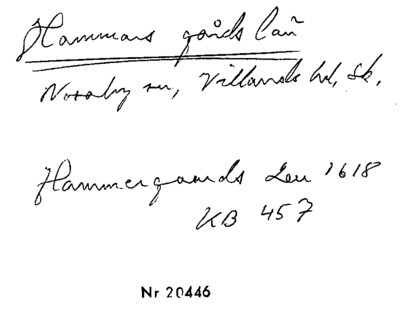 Hammars gårds län
Nosaby sn, Villands hd, Sk.
Hammergaards Len 1618
KB 457
Nr 20446